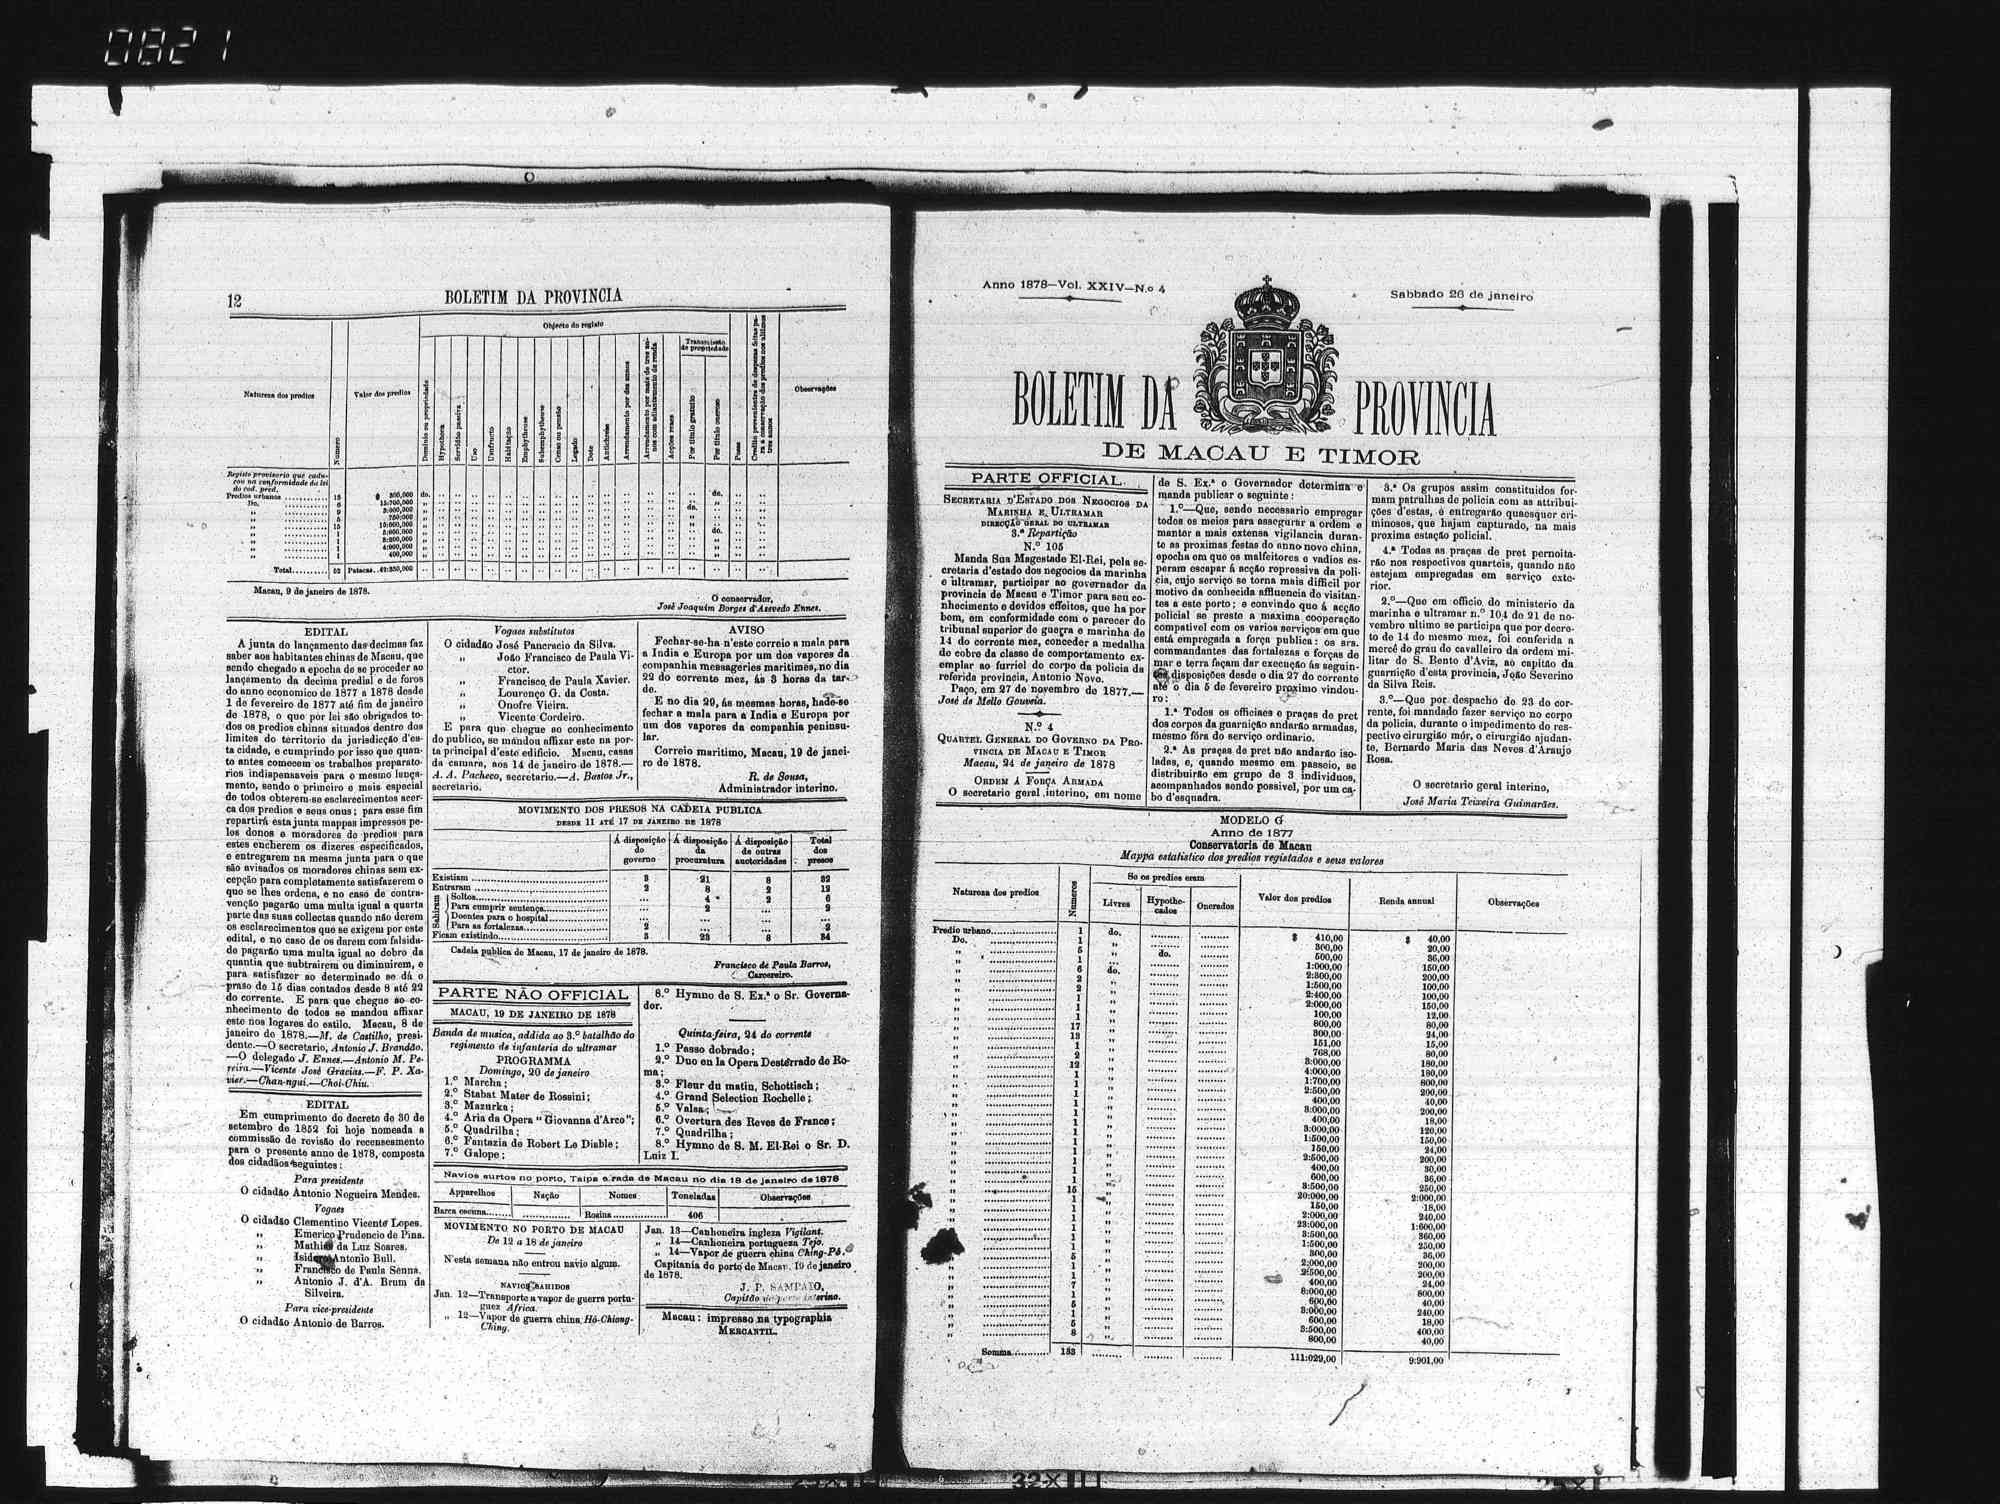 0821
12
BOLETIM DA PROVINCIA
Natureza dos predios
Numero
Valor dos predios
Objecto do registo
Dominio ou propriedade
Hypotheca
Servidão passiva
Uso
Usufructo
Habitação
Emphyteuse
Subemphyteuse
Censo ou pensão
Legado
Dote
Antichrese
Arrendamento por dez annos
Arrendamento por mais de tres annos com adiantamento de renda
Acções reaes
Transmissão de propriedade
Por titulo gratuito
Por titulo oneroso
Posse
Observações
Registo provisorio que cadu-
cou na conformidade da lei
do cod. pred.
Predios urbanos
Do.
Total.......... 52 Patacas..
Macau, 9 de janeiro de 1878.
O conservador,
José Joaquim Borges d'Azevedo Ennes.
EDITAL
A junta do lançamento das decimas faz
saber aos habitantes chinas de Macau, que
sendo chegado a epocha de se proceder ao
lançamento da decima predial e de foros
do anno economico de 1877 a 1878 desde
1 de fevereiro de 1877 até fim de janeiro
de 1878, o que por lei são obrigados to-
dos os predios chinas situados dentro dos
limites do territorio da jurisdicção d'es-
ta cidade, e cumprindo por isso que quan-
to antes comecem os trabalhos preparato-
rios indispensaveis para o mesmo lança-
mento, sendo o primeiro e mais especial
de todos obterem-se esclarecimentos acer-
ca dos predios e seus onus; para esse fim
repartirá esta junta mappas impressos pe-
los donos e moradores de predios para
estes encherem os dizeres especificados,
e entregarem na mesma junta para o que
são avisados os moradores chinas sem ex-
cepção para completamente satisfazerem o
que se lhes ordena, e no caso de contra-
venção pagarão uma multa igual a quarta
parte das suas collectas quando não derem
os esclarecimentos que se exigem por este
edital, e no caso de os darem com falsida-
de pagarão uma multa igual ao dobro da
quantia que subtrairem ou diminuirem, e
para satisfazer ao determinado se dá o
praso de 15 dias contados desde 8 até 22
do corrente. E para que chegue ao co-
nhecimento de todos se mandou affixar
este nos logares do estilo. Macau, 8 de
janeiro de 1878.—M. de Castilho, presi-
dente.—O secretario, Antonio J. Brandão.
—O delegado J. Ennes.—Antonio M. Pe-
reira.—Vicente José Gracias.—F. P. Xa-
vier.—Chan-ngui.—Choi-Chiu.
EDITAL
Em cumprimento do decreto de 30 de
setembro de 1852 foi hoje nomeada a
commissão de revisão do recenseamento
para o presente anno de 1878, composta
dos cidadãos seguintes:
Para presidente
O cidadão Antonio Nogueira Mendes.
Vogaes
O cidadão Clementino Vicente Lopes.
„ Emerico Prudencio de Pina.
„ Mathias da Luz Soares.
„ Isidoro Antonio Bull.
„ Francisco de Paula Senna.
„ Antonio J. d'A. Brum da
Silveira.
Para vice-presidente
O cidadão Antonio de Barros.
Vogaes substitutos
O cidadão José Pancracio da Silva.
„ João Francisco de Paula Vi-
ctor.
„ Francisco de Paula Xavier.
„ Lourenço G. da Costa.
„ Onofre Vieira.
„ Vicente Cordeiro.
E para que chegue ao conhecimento
do publico, se mandou affixar este na por-
ta principal d'este edificio. Macau, casas
da camara, aos 14 de janeiro de 1878.—
A. A. Pacheco, secretario.—A. Bastos Jr.,
secretario.
AVISO
Fechar-se-ha n'este correio a mala para
a India e Europa por um dos vapores da
companhia messageries maritimes, no dia
22 do corrente mez, ás 3 horas da tar-
de.
E no dia 29, ás mesmas horas, hade-se
fechar a mala para a India e Europa por
um dos vapores da companhia peninsu-
lar.
Correio maritimo, Macau, 19 de janei-
ro de 1878.
R. de Sousa,
Administrador interino.
MOVIMENTO DOS PRESOS NA CADEIA PUBLICA
DESDE 11 ATÉ 17 DE JANEIRO DE 1878
Á disposição do governo
Á disposição da procuratura
Á disposição de outras auctoridades
Total dos presos
Existiam 3 21 8 32
Entraram 2 8 2 12
Sahiram
Soltos ... 4 2 6
Para cumprir sentença ... 2 ... 2
Doentes para o hospital ... ... ... ...
Para as fortalezas 2 ... ... 2
Ficam existindo 3 23 8 34
Cadeia publica de Macau, 17 de janeiro de 1878.
Francisco de Paula Barros,
Carcereiro.
PARTE NÃO OFFICIAL
MACAU, 19 DE JANEIRO DE 1878
Banda de musica, addida ao 3.º batalhão do
regimento de infanteria do ultramar
PROGRAMMA
Domingo, 20 de janeiro
1.º Marcha;
2.º Stabat Mater de Rossini;
3.º Mazurka;
4.º Aria da Opera "Giovanna d'Arco";
5.º Quadrilha;
6.º Fantazia de Robert Le Diable;
7.º Galope;
8.º Hymno de S. Ex.ª o Sr. Governa-
dor.
Quinta-feira, 24 do corrente
1.º Passo dobrado;
2.º Duo en la Opera Desterrado de Ro-
ma;
3.º Fleur du matin, Schottisch;
4.º Grand Selection Rochelle;
5.º Valsa;
6.º Overtura des Reves de France;
7.º Quadrilha;
8.º Hymno de S. M. El-Rei o Sr. D.
Luiz I.
Navios surtos no porto, Taipa e rada de Macau no dia 18 de janeiro de 1878
Apparelhos Nação Nomes Toneladas Observações
Barca escuna....... ............ Rosina............ 406
MOVIMENTO NO PORTO DE MACAU
De 12 a 18 de janeiro
N'esta semana não entrou navio algum.
NAVIOS SAHIDOS
Jan. 12—Transporte a vapor de guerra portu-
guez Africa.
„ 12—Vapor de guerra china Hó-Chiong-
Ching.
Jan. 13—Canhoneira ingleza Vigilant.
„ 14—Canhoneira portugueza Tejo.
„ 14—Vapor de guerra china Ching-Pô.
Capitania do porto de Macau, 19 de janeiro
de 1878.
J. P. SAMPAIO,
Capitão do porto interino.
Macau: impresso na typographia
MERCANTIL.
Anno 1878—Vol. XXIV—N.º 4
Sabbado 26 de janeiro
BOLETIM DA PROVINCIA
DE MACAU E TIMOR
PARTE OFFICIAL
SECRETARIA D'ESTADO DOS NEGOCIOS DA
MARINHA E ULTRAMAR
DIRECÇÃO GERAL DO ULTRAMAR
3.ª Repartição
N.º 105
Manda Sua Magestade El-Rei, pela se-
cretaria d'estado dos negocios da marinha
e ultramar, participar ao governador da
provincia de Macau e Timor para seu co-
nhecimento e devidos effeitos, que ha por
bem, em conformidade com o parecer do
tribunal superior de guerra e marinha de
14 do corrente mez, conceder a medalha
de cobre da classe de comportamento ex-
emplar ao furriel do corpo da policia da
referida provincia, Antonio Novo.
Paço, em 27 de novembro de 1877.—
José de Mello Gouveia.
N.º 4
QUARTEL GENERAL DO GOVERNO DA PRO-
VINCIA DE MACAU E TIMOR
Macau, 24 de janeiro de 1878
ORDEM Á FORÇA ARMADA
O secretario geral interino, em nome
de S. Ex.ª o Governador determina e
manda publicar o seguinte:
1.º—Que, sendo necessario empregar
todos os meios para assegurar a ordem e
manter a mais extensa vigilancia duran-
te as proximas festas do anno novo china,
epocha em que os malfeitores e vadios es-
peram escapar á acção repressiva da poli-
cia, cujo serviço se torna mais difficil por
motivo da conhecida affluencia do visitan-
tes a este porto; e convindo que á acção
policial se preste a maxima cooperação
compativel com os varios serviços em que
está empregada a força publica: os srs.
commandantes das fortalezas e forças de
mar e terra façam dar execução ás seguin-
tes disposições desde o dia 27 do corrente
até o dia 5 de fevereiro proximo vindou-
ro:
1.ª Todos os officiaes e praças de pret
dos corpos da guarnição andarão armadas,
mesmo fóra do serviço ordinario.
2.ª As praças de pret não andarão iso-
ladas, e, quando mesmo em passeio, se
distribuirão em grupo de 3 individuos,
acompanhados sendo possivel, por um ca-
bo d'esquadra.
3.ª Os grupos assim constituidos for-
mam patrulhas de policia com as attribui-
ções d'estas, e entregarão quaesquer cri-
minosos, que hajam capturado, na mais
proxima estação policial.
4.ª Todas as praças de pret pernoita-
rão nos respectivos quarteis, quando não
estejam empregadas em serviço exte-
rior.
2.º—Que em officio do ministerio da
marinha e ultramar n.º 104 de 21 de no-
vembro ultimo se participa que por decre-
to de 14 do mesmo mez, foi conferida a
mercê do grau do cavalleiro da ordem mi-
litar de S. Bento d'Aviz, ao capitão da
guarnição d'esta provincia, João Severino
da Silva Reis.
3.º—Que por despacho de 23 do cor-
rente, foi mandado fazer serviço no corpo
da policia, durante o impedimento do res-
pectivo cirurgião mór, o cirurgião ajudan-
te, Bernardo Maria das Neves d'Araujo
Rosa.
O secretario geral interino,
José Maria Teixeira Guimarães.
MODELO G
Anno de 1877
Conservatoria de Macau
Mappa estatistico dos predios registados e seus valores
Natureza dos predios
Numeros
Se os predios eram
Livres
Hypothe-
cados
Onerados
Valor dos predios
Renda annual
Observações
Predio urbano 1 do. $ 410,00 $ 40,00
Do.
Somma 133 111:029,00 9:901,00